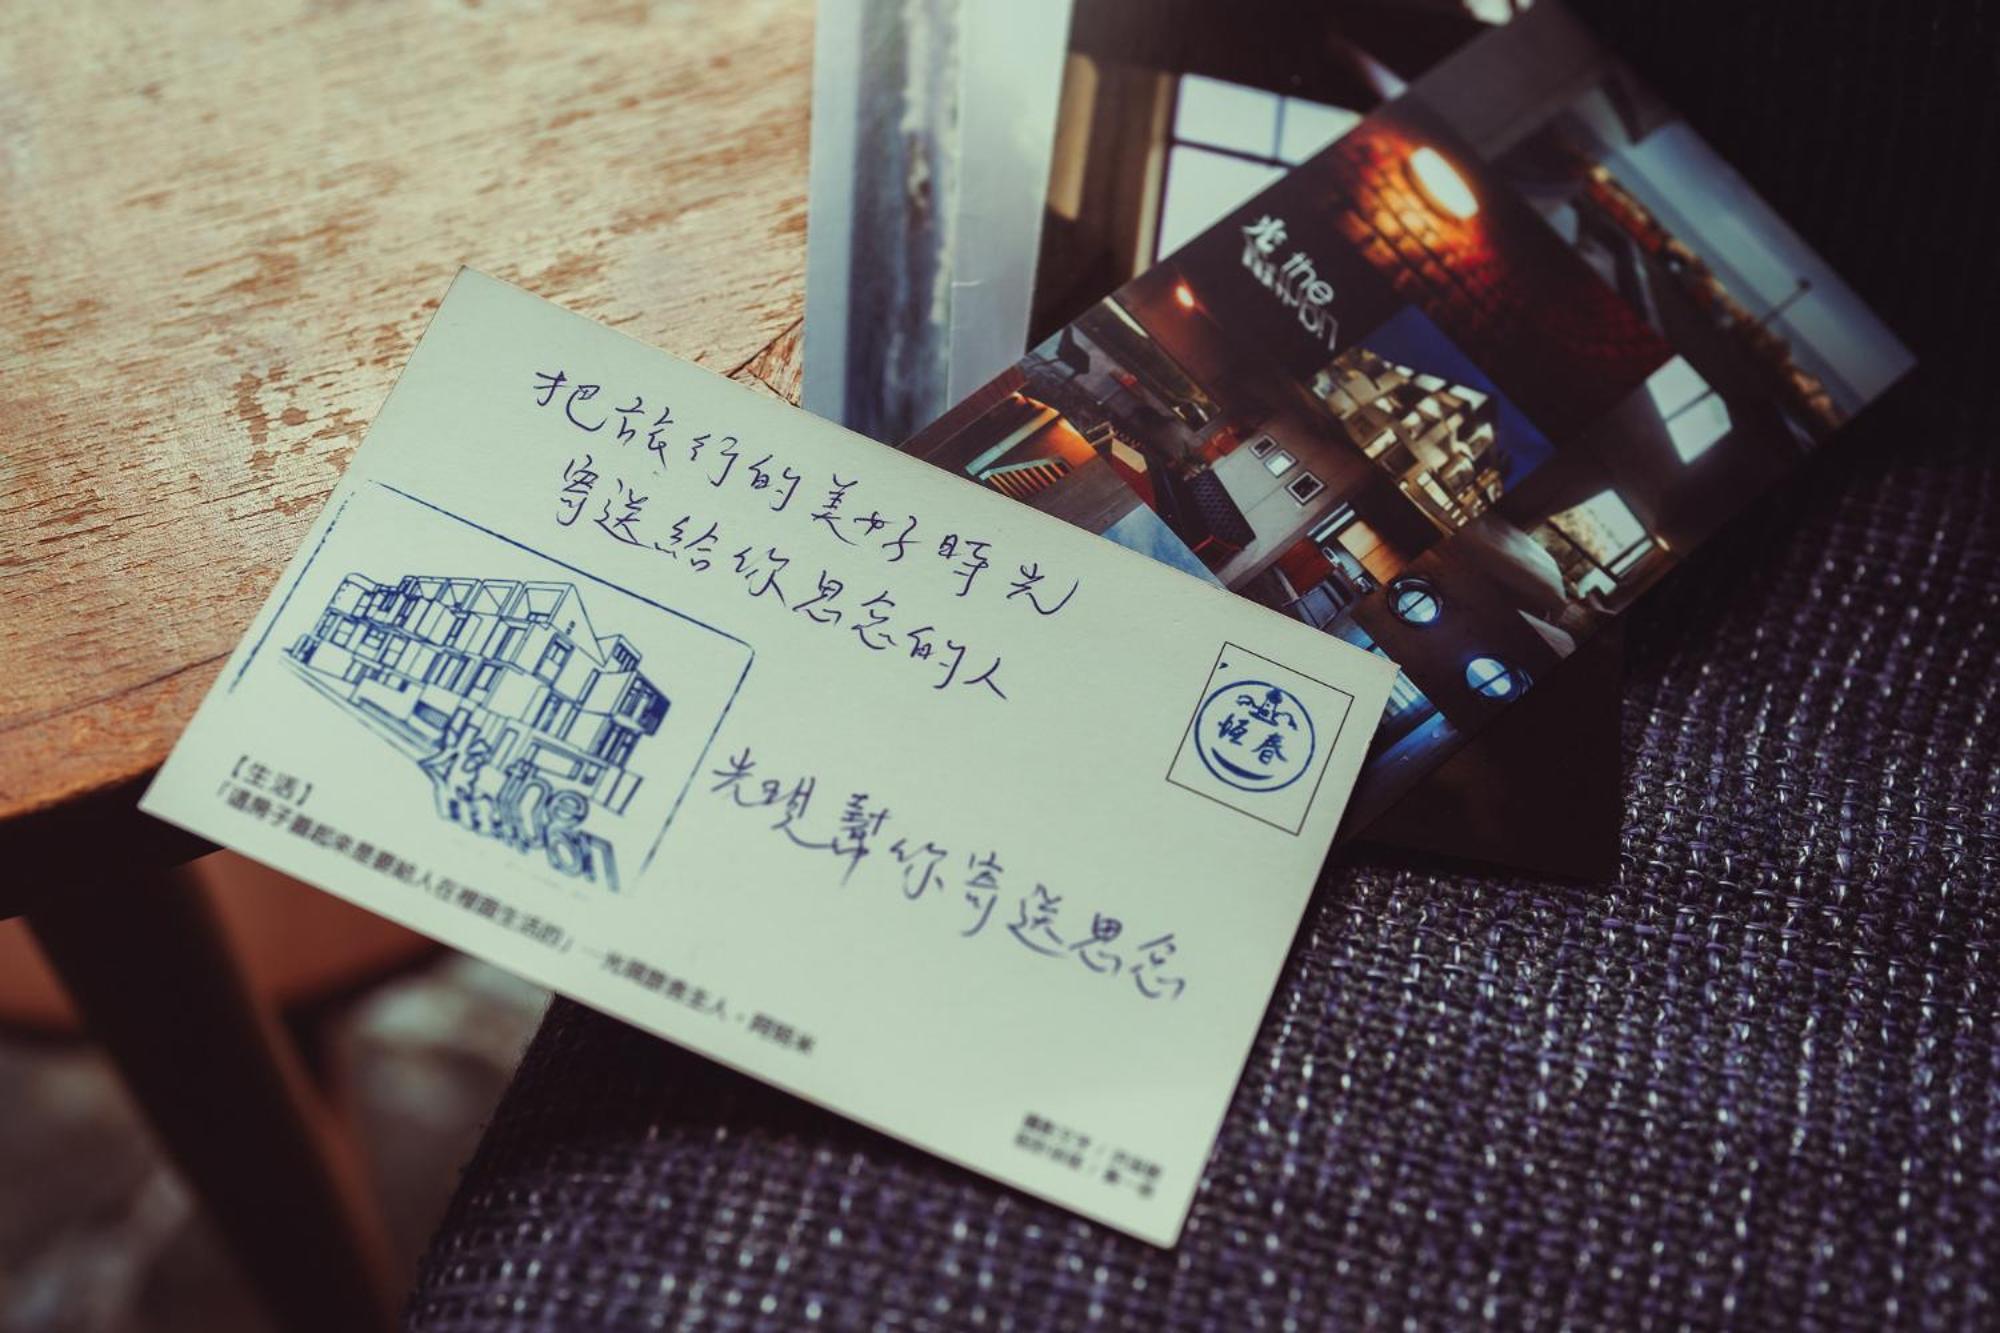 光 the
把旅行的美好時光
寄送給你思念的人
恆春
光現幫你寄送思念
光 the
【生活】
「這房子蓋起來是要給人在裡面生活的」—光現旅舍主人・阿糙米